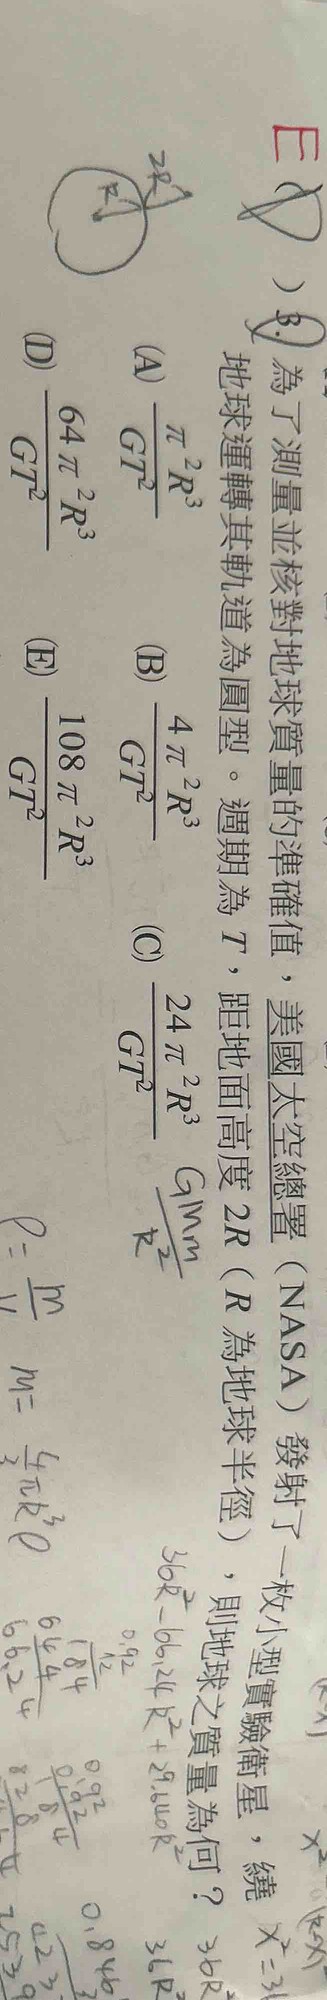 E
) 3. 為了測量並核對地球質量的準確值，美國太空總署（NASA）發射了一枚小型實驗衛星，繞
地球運轉其軌道為圓型。週期為 T，距地面高度 2R（R 為地球半徑），則地球之質量為何？
(A) π²R³/GT²  (B) 4π²R³/GT²  (C) 24π²R³/GT²
(D) 64π²R³/GT²  (E) 108π²R³/GT²
2R
R
GMm/R²
ρ = m/V  m = 4/3 πR³ρ
36R² - 66.24R² + 29.640R²
0.92
12
184
644
66.24
0.92
0.92
184
828
0.846
36R²